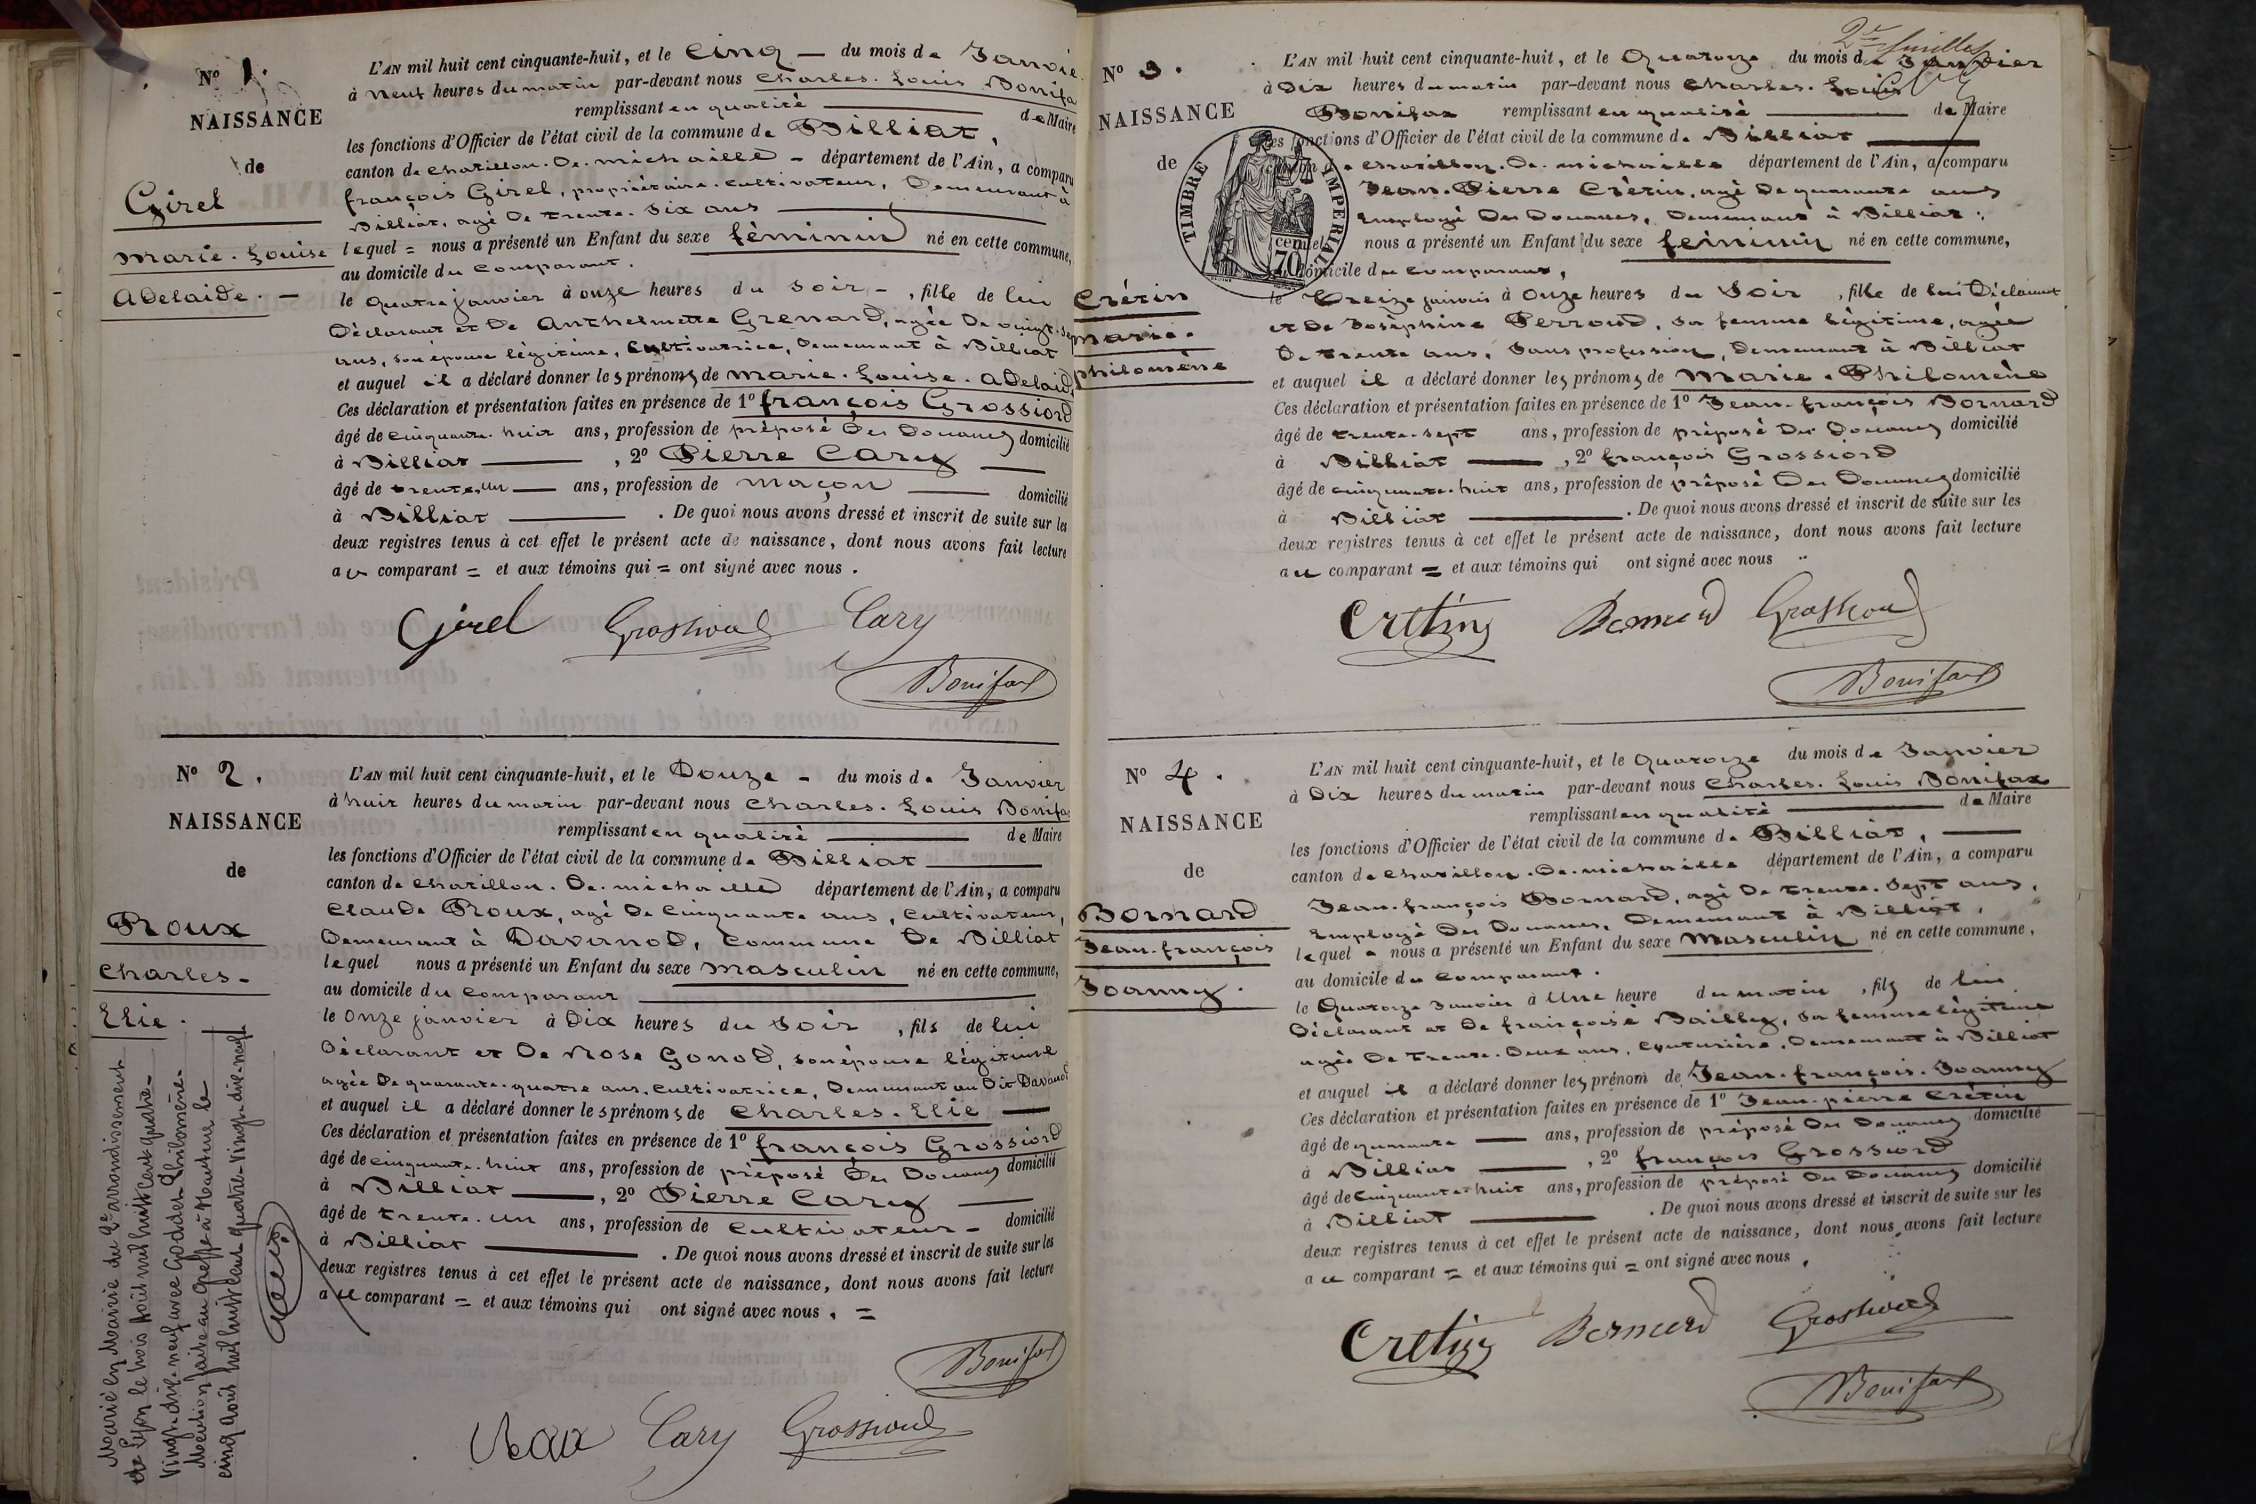 Nº 1.
NAISSANCE
de
Girel
Marie. Louise
Adelaïde. —
L'AN mil huit cent cinquante-huit, et le Cinq — du mois de Janvie
à Neuf heures du matin par-devant nous Charles. Louis Bonifa
remplissant en qualité de Maire
les fonctions d'Officier de l'état civil de la commune de Billiat,
canton de Chatillon. De. Michaille – département de l'Ain, a comparu
françois Girel, propriétaire. cultivateur, Demeurant à
Billiat, agé De trente. Six ans
lequel = nous a présenté un Enfant du sexe féminin né en cette commune,
au domicile du Comparant.
le quatre janvier à onze heures du Soir –, fille de lui
Déclarant et De Anthelmette Grenard, agée De vingt. sep
ans, son épouse légitime, Cultivatrice, Demeurant à Billiat
et auquel il a déclaré donner les prénoms de Marie. Louise. Adelaid
Ces déclaration et présentation faites en présence de 1º françois Grossiord
âgé de cinquante. huit ans, profession de préposé Des Douanes domicilié
à Billiat, 2º Pierre Cary
âgé de trente. un ans, profession de maçon domicilié
à Billiat. De quoi nous avons dressé et inscrit de suite sur les
deux registres tenus à cet effet le présent acte de naissance, dont nous avons fait lecture
au comparant = et aux témoins qui = ont signé avec nous.
Girel Grossiord Cary
Bonifax
Nº 2.
NAISSANCE
de
Roux
Charles –
Elie.
Marié en Mairie du 2e arrondissement
de Lyon le trois Août mil huit cent quatre-
Vingt-dix-neuf avec Godden Philomène.
Mention faite au Greffe à Nantua le
cinq Août mil huit cent quatre-vingt-dix-neuf
L'AN mil huit cent cinquante-huit, et le Douze – du mois de Janvier
à huit heures du matin par-devant nous Charles. Louis Bonifa
remplissant en qualité de Maire
les fonctions d'Officier de l'état civil de la commune de Billiat
canton de Chatillon. De. Michaille département de l'Ain, a comparu
Claude Roux, agé De Cinquante ans, Cultivateur,
Demeurant à Davanod, Commune De Billiat
lequel nous a présenté un Enfant du sexe masculin né en cette commune,
au domicile du Comparant
le Onze janvier à Dix heures du Soir, fils de lui
Déclarant et De Rose Gonod, son épouse légitime
agée De quarante. quatre ans, Cultivatrice, Demeurant au Dit Davanod
et auquel il a déclaré donner les prénoms de Charles. Elie
Ces déclaration et présentation faites en présence de 1º françois Grossiord
âgé de cinquante. huit ans, profession de préposé Des Douanes domicilié
à Billiat, 2º Pierre Cary
âgé de trente. un ans, profession de Cultivateur – domicilié
à Billiat. De quoi nous avons dressé et inscrit de suite sur les
deux registres tenus à cet effet le présent acte de naissance, dont nous avons fait lecture
au comparant = et aux témoins qui ont signé avec nous. =
Bonifax
Roux Cary Grossiord
2e feuillet
Nº 3.
NAISSANCE
de
TIMBRE IMPERIAL
70 cent
Crétin
Marie.
Philomène
L'AN mil huit cent cinquante-huit, et le Quatorze du mois de Janvier
à Dix heures du matin par-devant nous Charles. Louis
Bonifax remplissant en qualité de Maire
les fonctions d'Officier de l'état civil de la commune de Billiat
canton de Chatillon. De. Michaille département de l'Ain, a comparu
Jean. Pierre Crétin, agé De quarante ans
Employé Des Douanes, Demeurant à Billiat.
lequel nous a présenté un Enfant du sexe féminin né en cette commune,
au domicile du Comparant,
le Treize janvier à Onze heures du Soir, fille de lui Déclarant
et De Joséphine Perroud, sa femme légitime, agée
De trente ans, Sans profession, Demeurant à Billiat
et auquel il a déclaré donner les prénoms de Marie. Philomène
Ces déclaration et présentation faites en présence de 1º Jean. françois Bornard
âgé de trente. sept ans, profession de préposé Des Douanes domicilié
à Billiat, 2º françois Grossiord
âgé de cinquante. huit ans, profession de préposé Des Douanes domicilié
à Billiat. De quoi nous avons dressé et inscrit de suite sur les
deux registres tenus à cet effet le présent acte de naissance, dont nous avons fait lecture
au comparant = et aux témoins qui ont signé avec nous
Cretin Bornard Grossiord
Bonifax
Nº 4.
NAISSANCE
de
Bornard
Jean. françois
Joanny.
L'AN mil huit cent cinquante-huit, et le Quatorze du mois de Janvier
à Dix heures du matin par-devant nous Charles. Louis Bonifax
remplissant en qualité de Maire
les fonctions d'Officier de l'état civil de la commune de Billiat,
canton de Chatillon. De. Michaille département de l'Ain, a comparu
Jean. françois Bornard, agé De trente. Sept ans,
Employé Des Douanes, Demeurant à Billiat,
lequel = nous a présenté un Enfant du sexe Masculin né en cette commune,
au domicile du Comparant.
le Quatorze Janvier à Une heure du matin, fils de lui
Déclarant et De françoise Bailly, sa femme légitime
agée De Trente. Deux ans, Couturière, Demeurant à Billiat
et auquel il a déclaré donner les prénom de Jean. françois. Joanny
Ces déclaration et présentation faites en présence de 1º Jean. pierre Crétin
âgé de quarante ans, profession de préposé Des Douanes domicilié
à Billiat, 2º françois Grossiord
âgé de Cinquante-huit ans, profession de préposé Des Douanes domicilié
à Billiat. De quoi nous avons dressé et inscrit de suite sur les
deux registres tenus à cet effet le présent acte de naissance, dont nous avons fait lecture
au comparant = et aux témoins qui = ont signé avec nous.
Cretin Bornard Grossiord
Bonifax